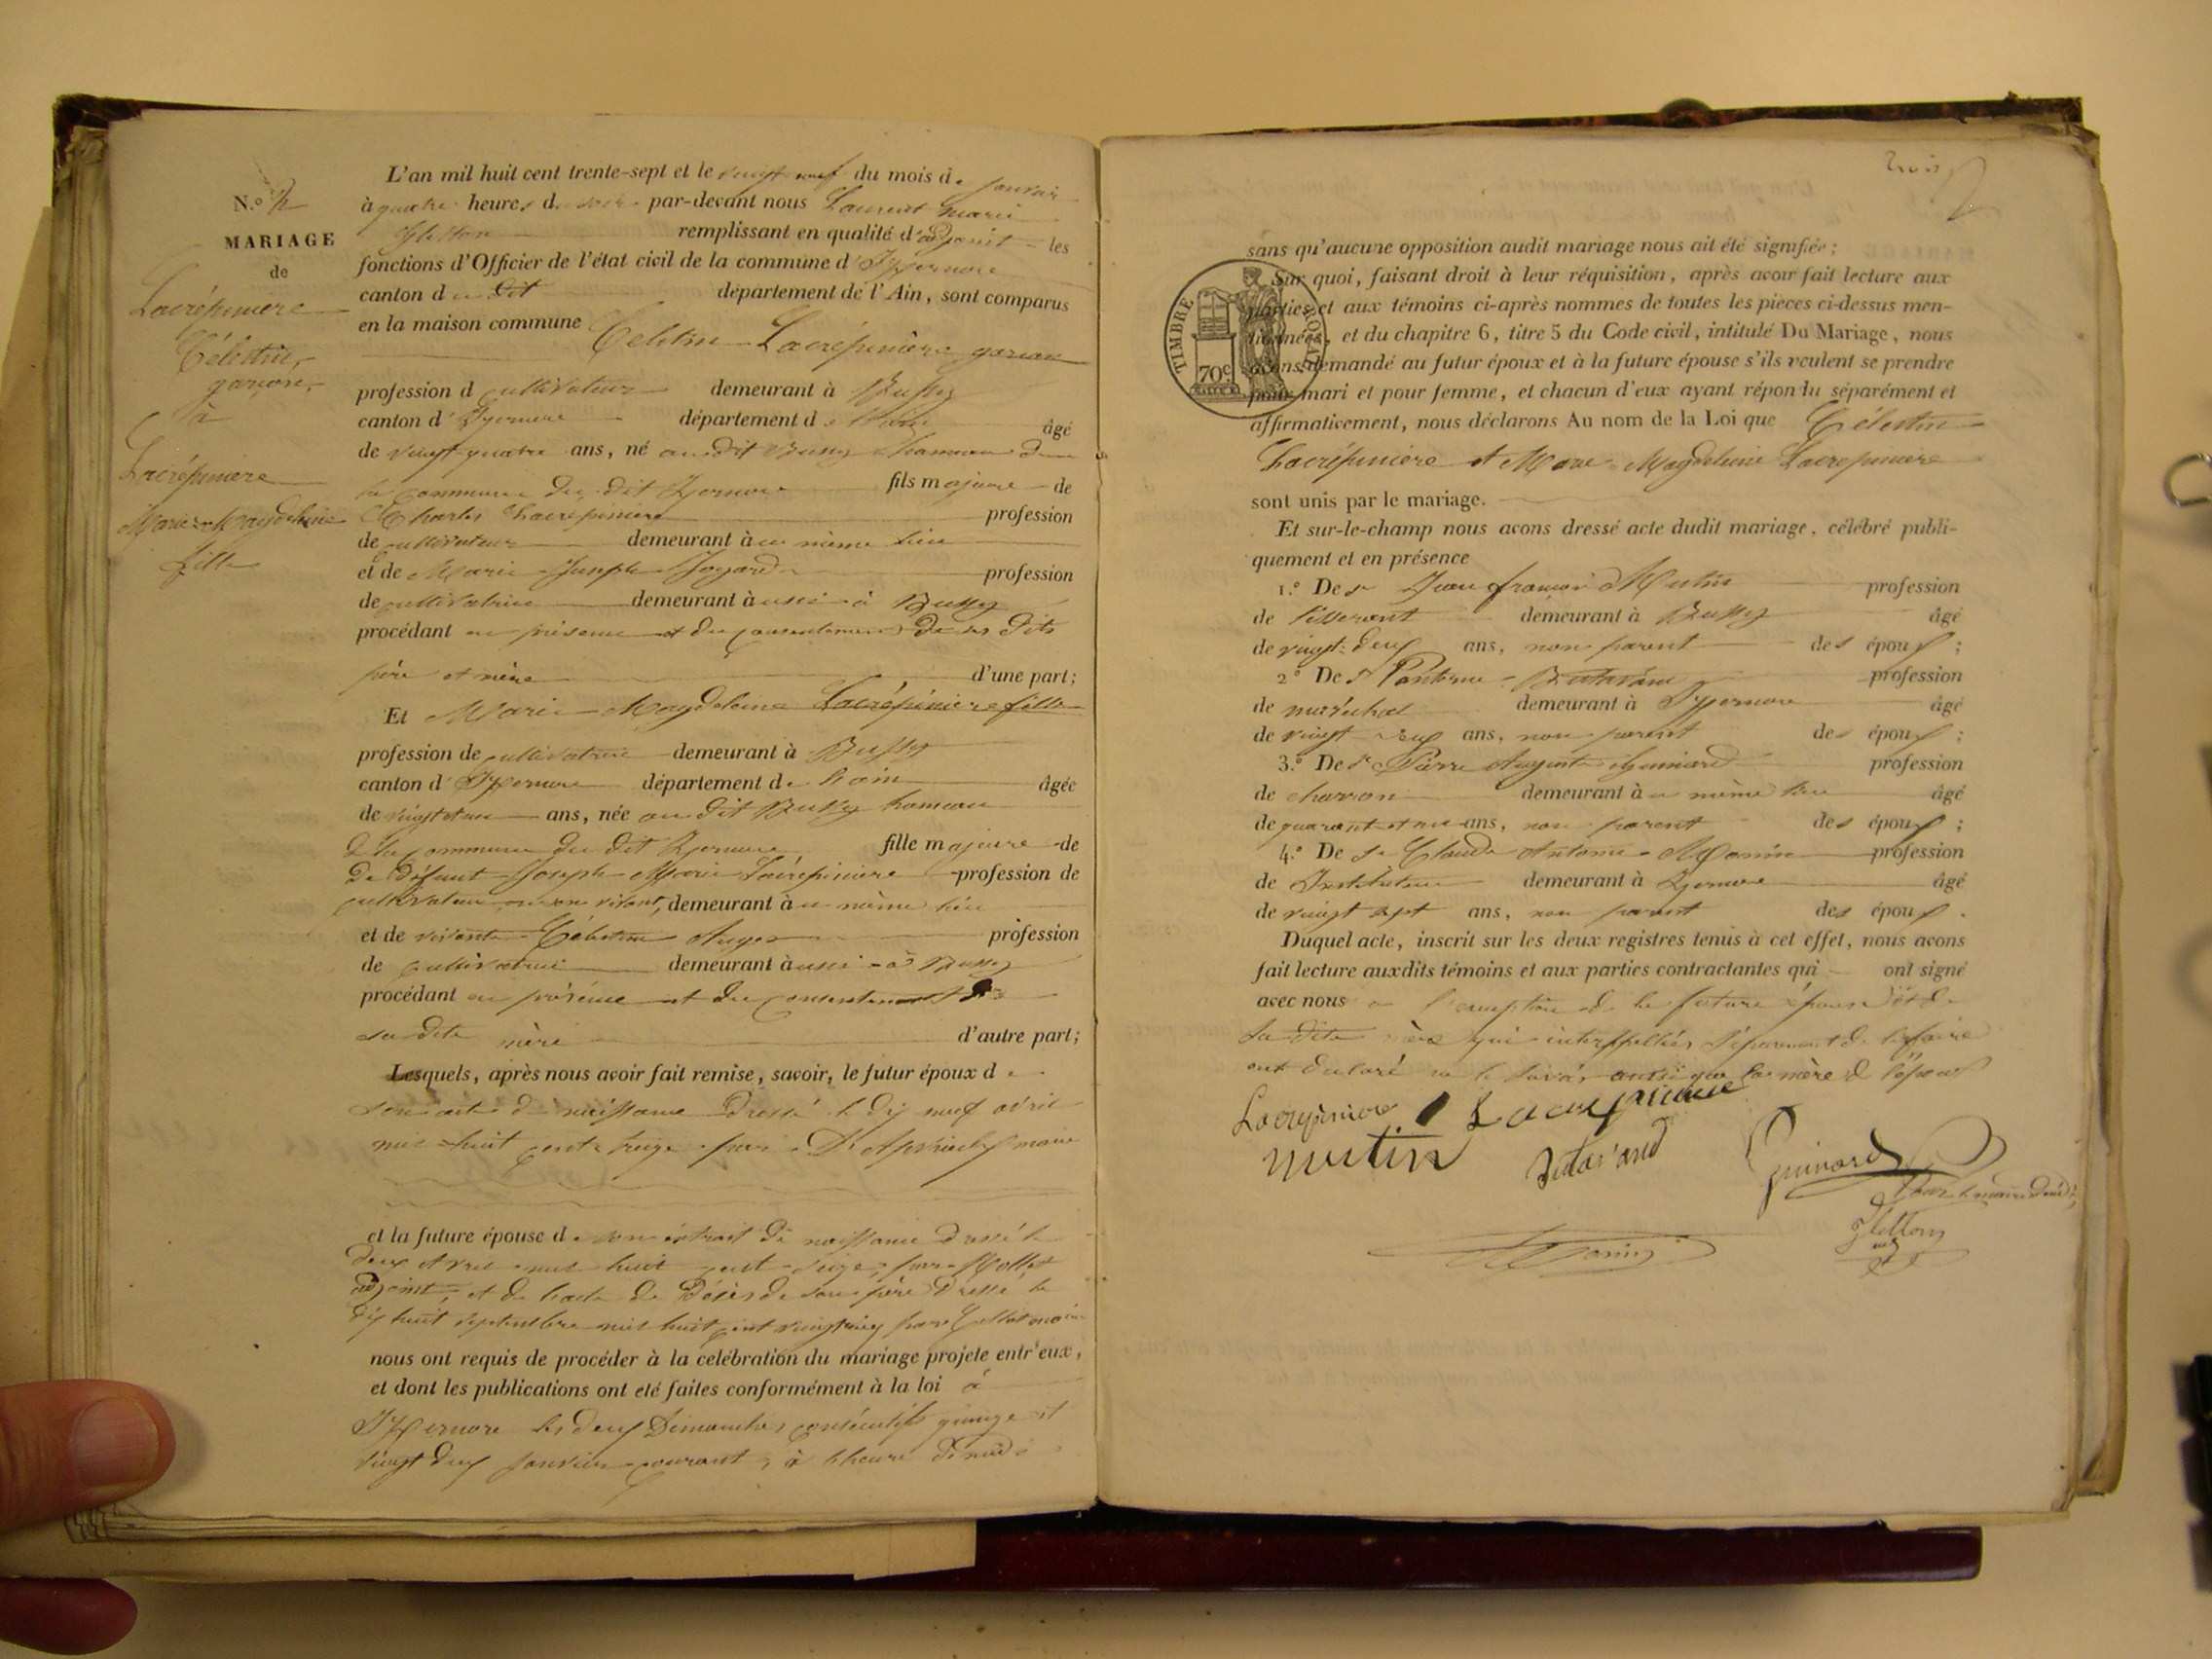 N.º 2
MARIAGE
de
Lacrépiniere
Célestin,
garçon,
à
Lacrépiniere
Marie Magdeleine
fille
L'an mil huit cent trente-sept et le vingt neuf du mois de janvier
à quatre heures du soir par-devant nous Laurent marie
remplissant en qualité d'adjoint les
fonctions d'Officier de l'état civil de la commune d'Izernore
canton du dit département de l'Ain, sont comparus
en la maison commune Célestin Lacrépiniere garçon
profession de cultivateur demeurant à Bussy
canton d'Izernore département de l'ain âgé
de vingt quatre ans, né au dit Bussy hameau de
la commune du dit Izernore fils majeur de
Charles Lacrépiniere profession
de cultivateur demeurant à u même lieu
et de Marie Joseph Joyard profession
de cultivatrice demeurant aussi à Bussy
procédant en présence et du consentement de ses dits
père et mère d'une part;
Et Marie Magdeleine Lacrépiniere fille
profession de cultivatrice demeurant à Bussy
canton d'Izernore département de l'ain âgée
de vingt et un ans, née au dit Bussy hameau
de la commune du dit Izernore fille majeure de
De défunt Joseph Marie Lacrépiniere profession de
cultivateur en son vivant, demeurant à u même lieu
et de vivante Célestine Auger profession
de cultivatrice demeurant aussi à Bussy
procédant en présence et du consentement de
sa dite mère d'autre part;
Lesquels, après nous avoir fait remise, savoir, le futur époux de
son acte de naissance dressé le dix neuf avril
mil huit cent treize par maire
et la future épouse de son extrait de naissance dressé le
deux avril mil huit cent seize, par Mollet
adjoint, et de l'acte de Décès de son père dressé le
dix huit septembre mil huit cent vingt par maire
nous ont requis de procéder à la celébration du mariage projete entr'eux,
et dont les publications ont eté faites conformément à la loi à
Izernore les deux Dimanches consécutifs quinze et
vingt deux janvier courant, à l'heure de midi
trois
TIMBRE ROYAL
70c
sans qu'aucune opposition audit mariage nous ait été signifiée;
Sur quoi, faisant droit à leur réquisition, après avoir fait lecture aux
parties et aux témoins ci-après nommes de toutes les pieces ci-dessus men-
tionnées, et du chapitre 6, titre 5 du Code civil, intitulé Du Mariage, nous
avons demandé au futur époux et à la future épouse s'ils veulent se prendre
pour mari et pour femme, et chacun d'eux ayant répondu séparément et
affirmativement, nous déclarons Au nom de la Loi que Célestin
Lacrépiniere et Marie Magdeleine Lacrepiniere
sont unis par le mariage.
Et sur-le-champ nous avons dressé acte dudit mariage, célébré publi-
quement et en présence
1.º De sr Jean françois Mutin profession
de tisserant demeurant à Bussy âgé
de vingt deux ans, non parent des époux;
2º De sr profession
de maréchal demeurant à Izernore âgé
de vingt neuf ans, non parent des époux;
3.º De sr Pierre August Guinard profession
de charron demeurant à u même lieu âgé
de quarant et un ans, non parent des époux;
4.º De sr Claude Antoine Monin profession
de Instituteur demeurant à Izernore âgé
de vingt sept ans, non parent des époux.
Duquel acte, inscrit sur les deux registres tenus à cet effet, nous avons
fait lecture auxdits témoins et aux parties contractantes qui ont signé
avec nous à l'exception de la future épouse et de
sa dite mère qui interpellées séparement de le faire
ont declaré ne le savoir aussi que la mère de l'époux
Lacrepiniere Lacrepiniere
mutin
Guinard
Pour le maire
Monin